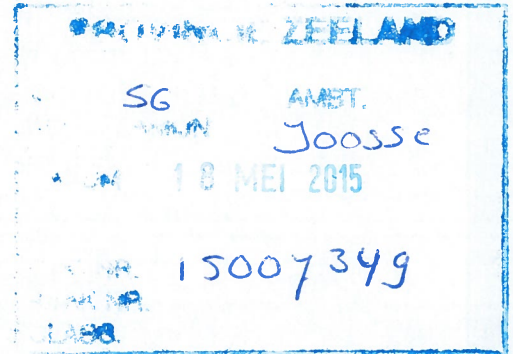 PROVINCIE ZEELAND
SG AMBT.
Joosse
18 MEI 2015
NR. 15007349
NR.
CLASS.